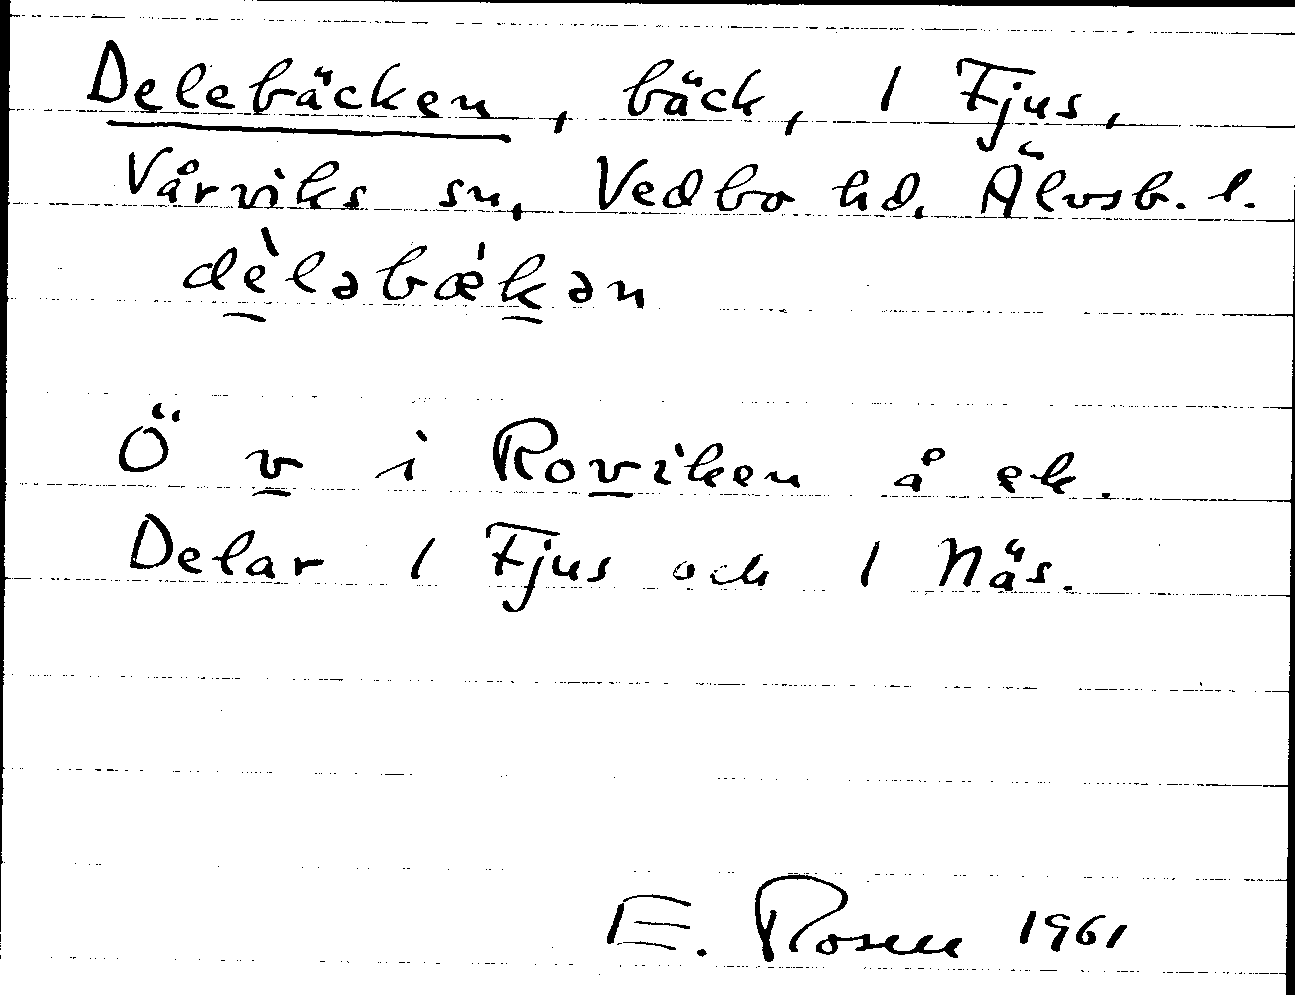 Delebäcken, bäck, 1 Fjus,
Vårviks sn, Vedbo hd. Älvsb. l.
dèləbǽkən
Ö v i Roviken å ek.
Delar 1 Fjus och 1 Näs.
E. Rosen 1961